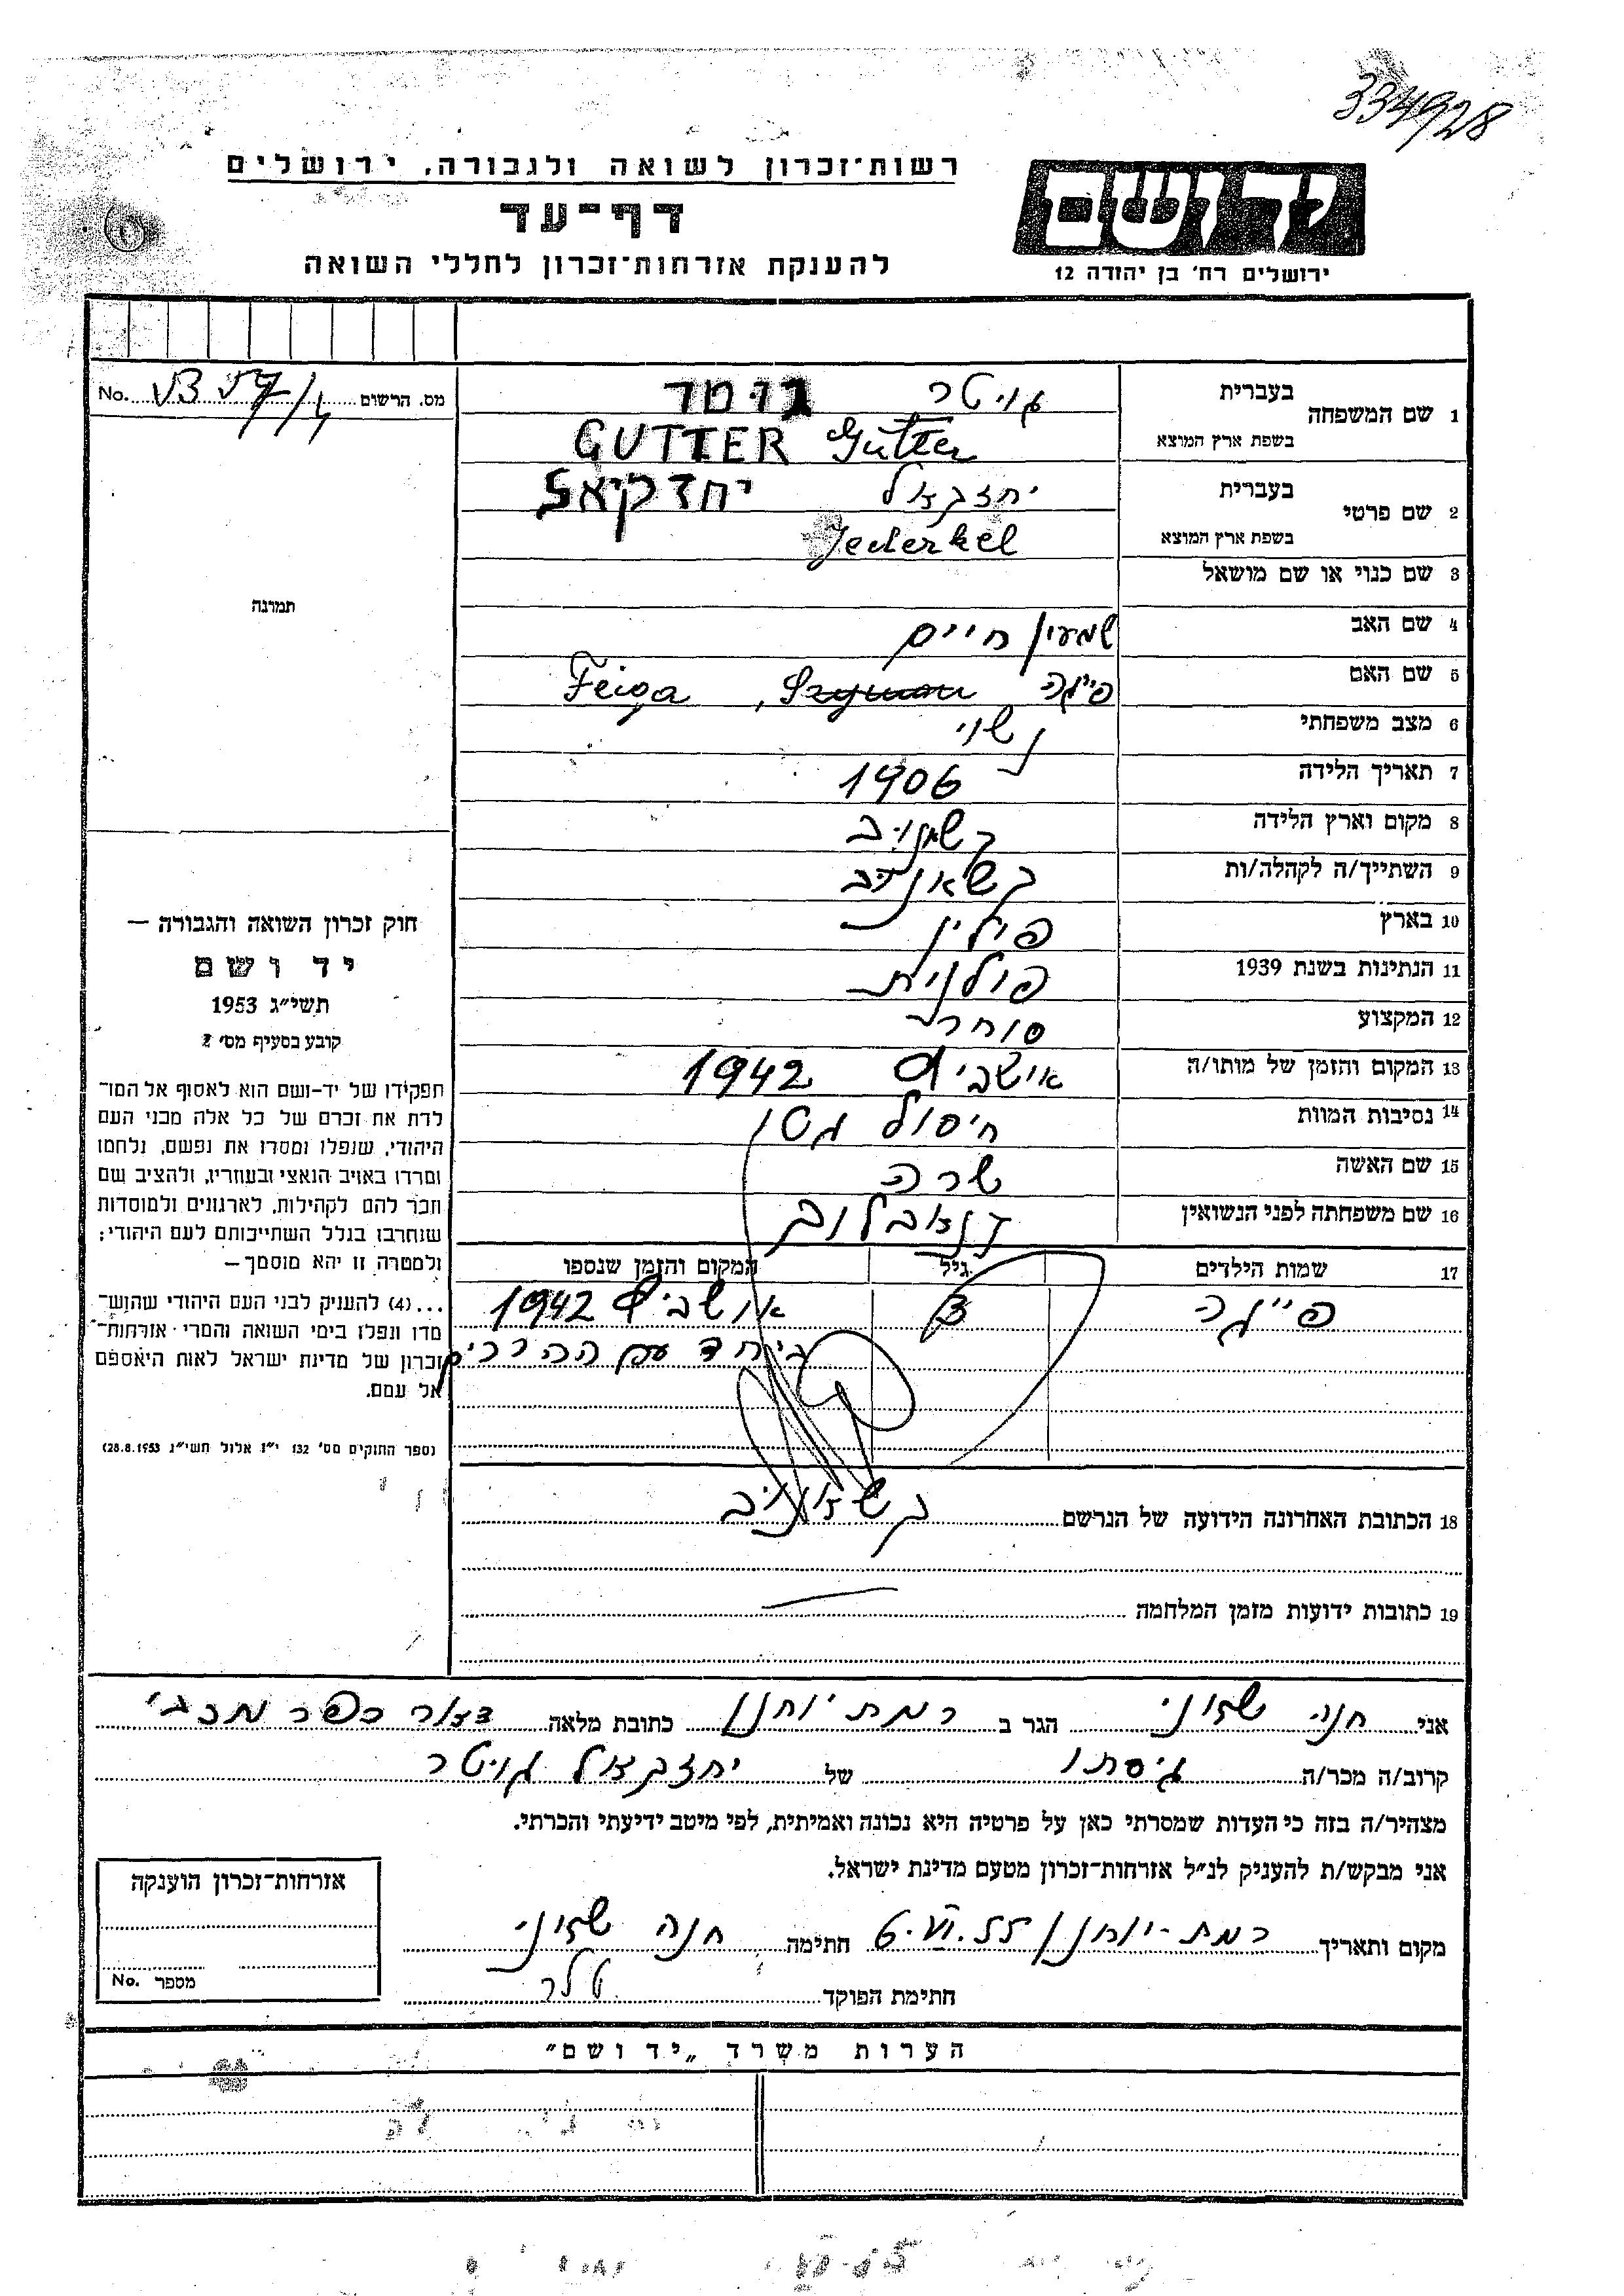 334928
רשות־זכרון לשואה ולגבורה, ירושלים
דף־עד
להענקת אזרחות־זכרון לחללי השואה
יד ושם
ירושלים רח' בן יהודה 12
מס. הרשום No.
1 שם המשפחה
בעברית גוטר גוטר
בשפת ארץ המוצא Gutter GUTTER
2 שם פרטי
בעברית יחזקאל יחזקיאל
בשפת ארץ המוצא
3 שם כנוי או שם מושאל
4 שם האב שמעון חיים
5 שם האם פייגה Feiga
6 מצב משפחתי נשוי
7 תאריך הלידה 1906
8 מקום וארץ הלידה קשאנוב
9 השתייך/ה לקהלה/ות קשאנוב
10 בארץ פולין
11 הנתינות בשנת 1939 פולנית
12 המקצוע סוחר
13 המקום והזמן של מותו/ה אושביץ 1942
14 נסיבות המוות חיסול גטו
15 שם האשה שרה
16 שם משפחתה לפני הנשואין
17 שמות הילדים גיל המקום והזמן שנספו
פייגה 3 אושביץ 1942
ביחד עם ההורים
18 הכתובת האחרונה הידועה של הנרשם קשאנוב
19 כתובות ידועות מזמן המלחמה
תמונה
חוק זכרון השואה והגבורה —
יד ושם
תשי"ג 1953
קובע בסעיף מס' 2
תפקידו של יד-ושם הוא לאסוף אל המו־
לדת את זכרם של כל אלה מבני העם
היהודי, שנפלו ומסרו את נפשם, נלחמו
ומרדו באויב הנאצי ובעוזריו, ולהציב שם
וזכר להם לקהילות, לארגונים ולמוסדות
שנחרבו בגלל השתייכותם לעם היהודי;
ולמטרה זו יהא מוסמך —
...(4) להעניק לבני העם היהודי שהוש־
מדו ונפלו בימי השואה והמרי אזרחות־
זכרון של מדינת ישראל לאות היאספם
אל עמם.
(ספר החוקים מס' 132 י"ז אלול תשי"ג 28.8.1953)
אני חנה שזוני הגר ב רמת יוחנן כתובת מלאה דאר כפר מכבי
קרוב/ה מכר/ה גיסתו של יחזקאל גוטר
מצהיר/ה בזה כי העדות שמסרתי כאן על פרטיה היא נכונה ואמיתית, לפי מיטב ידיעתי והכרתי.
אני מבקש/ת להעניק לנ"ל אזרחות־זכרון מטעם מדינת ישראל.
מקום ותאריך רמת-יוחנן 6.VI.55 חתימה חנה שזוני
חתימת הפוקד טלר
אזרחות־זכרון הוענקה
מספר No.
הערות משרד "יד ושם"